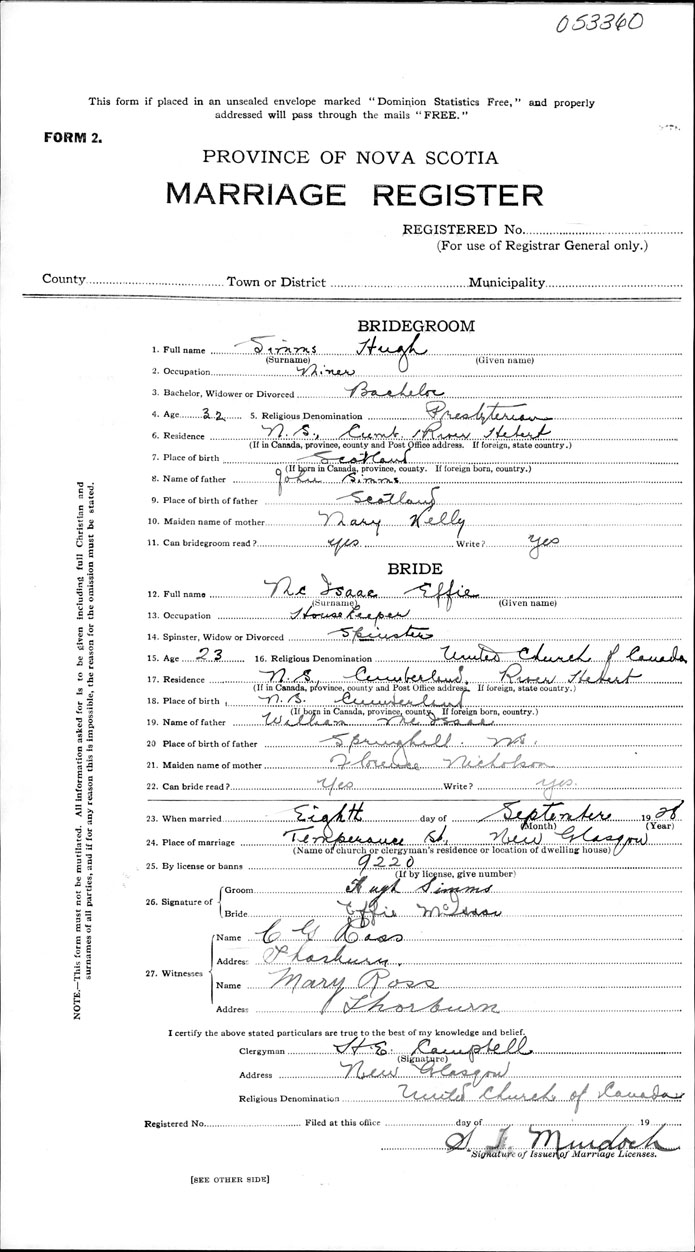 053360
This form if placed in an unsealed envelope marked "Dominion Statistics Free," and properly
addressed will pass through the mails "FREE."
FORM 2.
PROVINCE OF NOVA SCOTIA
MARRIAGE REGISTER
REGISTERED No.
(For use of Registrar General only.)
County Town or District Municipality
BRIDEGROOM
1. Full name Simms Hugh
(Surname) (Given name)
2. Occupation Miner
3. Bachelor, Widower or Divorced Bachelor
4. Age 32 5. Religious Denomination Presbyterian
6. Residence N.S., Cumb. River Hebert
(If in Canada, province, county and Post Office address. If foreign, state country.)
7. Place of birth Scotland
(If born in Canada, province, county. If foreign born, country.)
8. Name of father John Simms
9. Place of birth of father Scotland
10. Maiden name of mother Mary Kelly
11. Can bridegroom read? yes Write? yes
BRIDE
12. Full name Mc Isaac Effie
(Surname) (Given name)
13. Occupation Housekeeper
14. Spinster, Widow or Divorced Spinster
15. Age 23 16. Religious Denomination United Church of Canada
17. Residence N.S., Cumberland, River Hebert
(If in Canada, province, county and Post Office address. If foreign, state country.)
18. Place of birth N.S. Cumberland
(If born in Canada, province, county. If foreign born, country.)
19. Name of father William McIsaac
20 Place of birth of father Springhill N.S.
21. Maiden name of mother Florence Nicholson
22. Can bride read? Yes Write? yes.
23. When married Eighth day of September 1928
(Month) (Year)
24. Place of marriage Temperance St, New Glasgow
(Name of church or clergyman's residence or location of dwelling house)
25. By license or banns 9220
(If by license, give number)
26. Signature of
Groom Hugh Simms
Bride Effie McIsaac
27. Witnesses
Name C G Ross
Address Thorburn.
Name Mary Ross
Address Thorburn
I certify the above stated particulars are true to the best of my knowledge and belief.
Clergyman H.E. Campbell
(Signature)
Address New Glasgow
Religious Denomination United Church of Canada
Registered No. Filed at this office day of 19
Murdoch
Signature of Issuer of Marriage Licenses.
[SEE OTHER SIDE]
NOTE.—This form must not be mutilated. All information asked for is to be given including full Christian and
surnames of all parties, and if for any reason this is impossible, the reason for the omission must be stated.